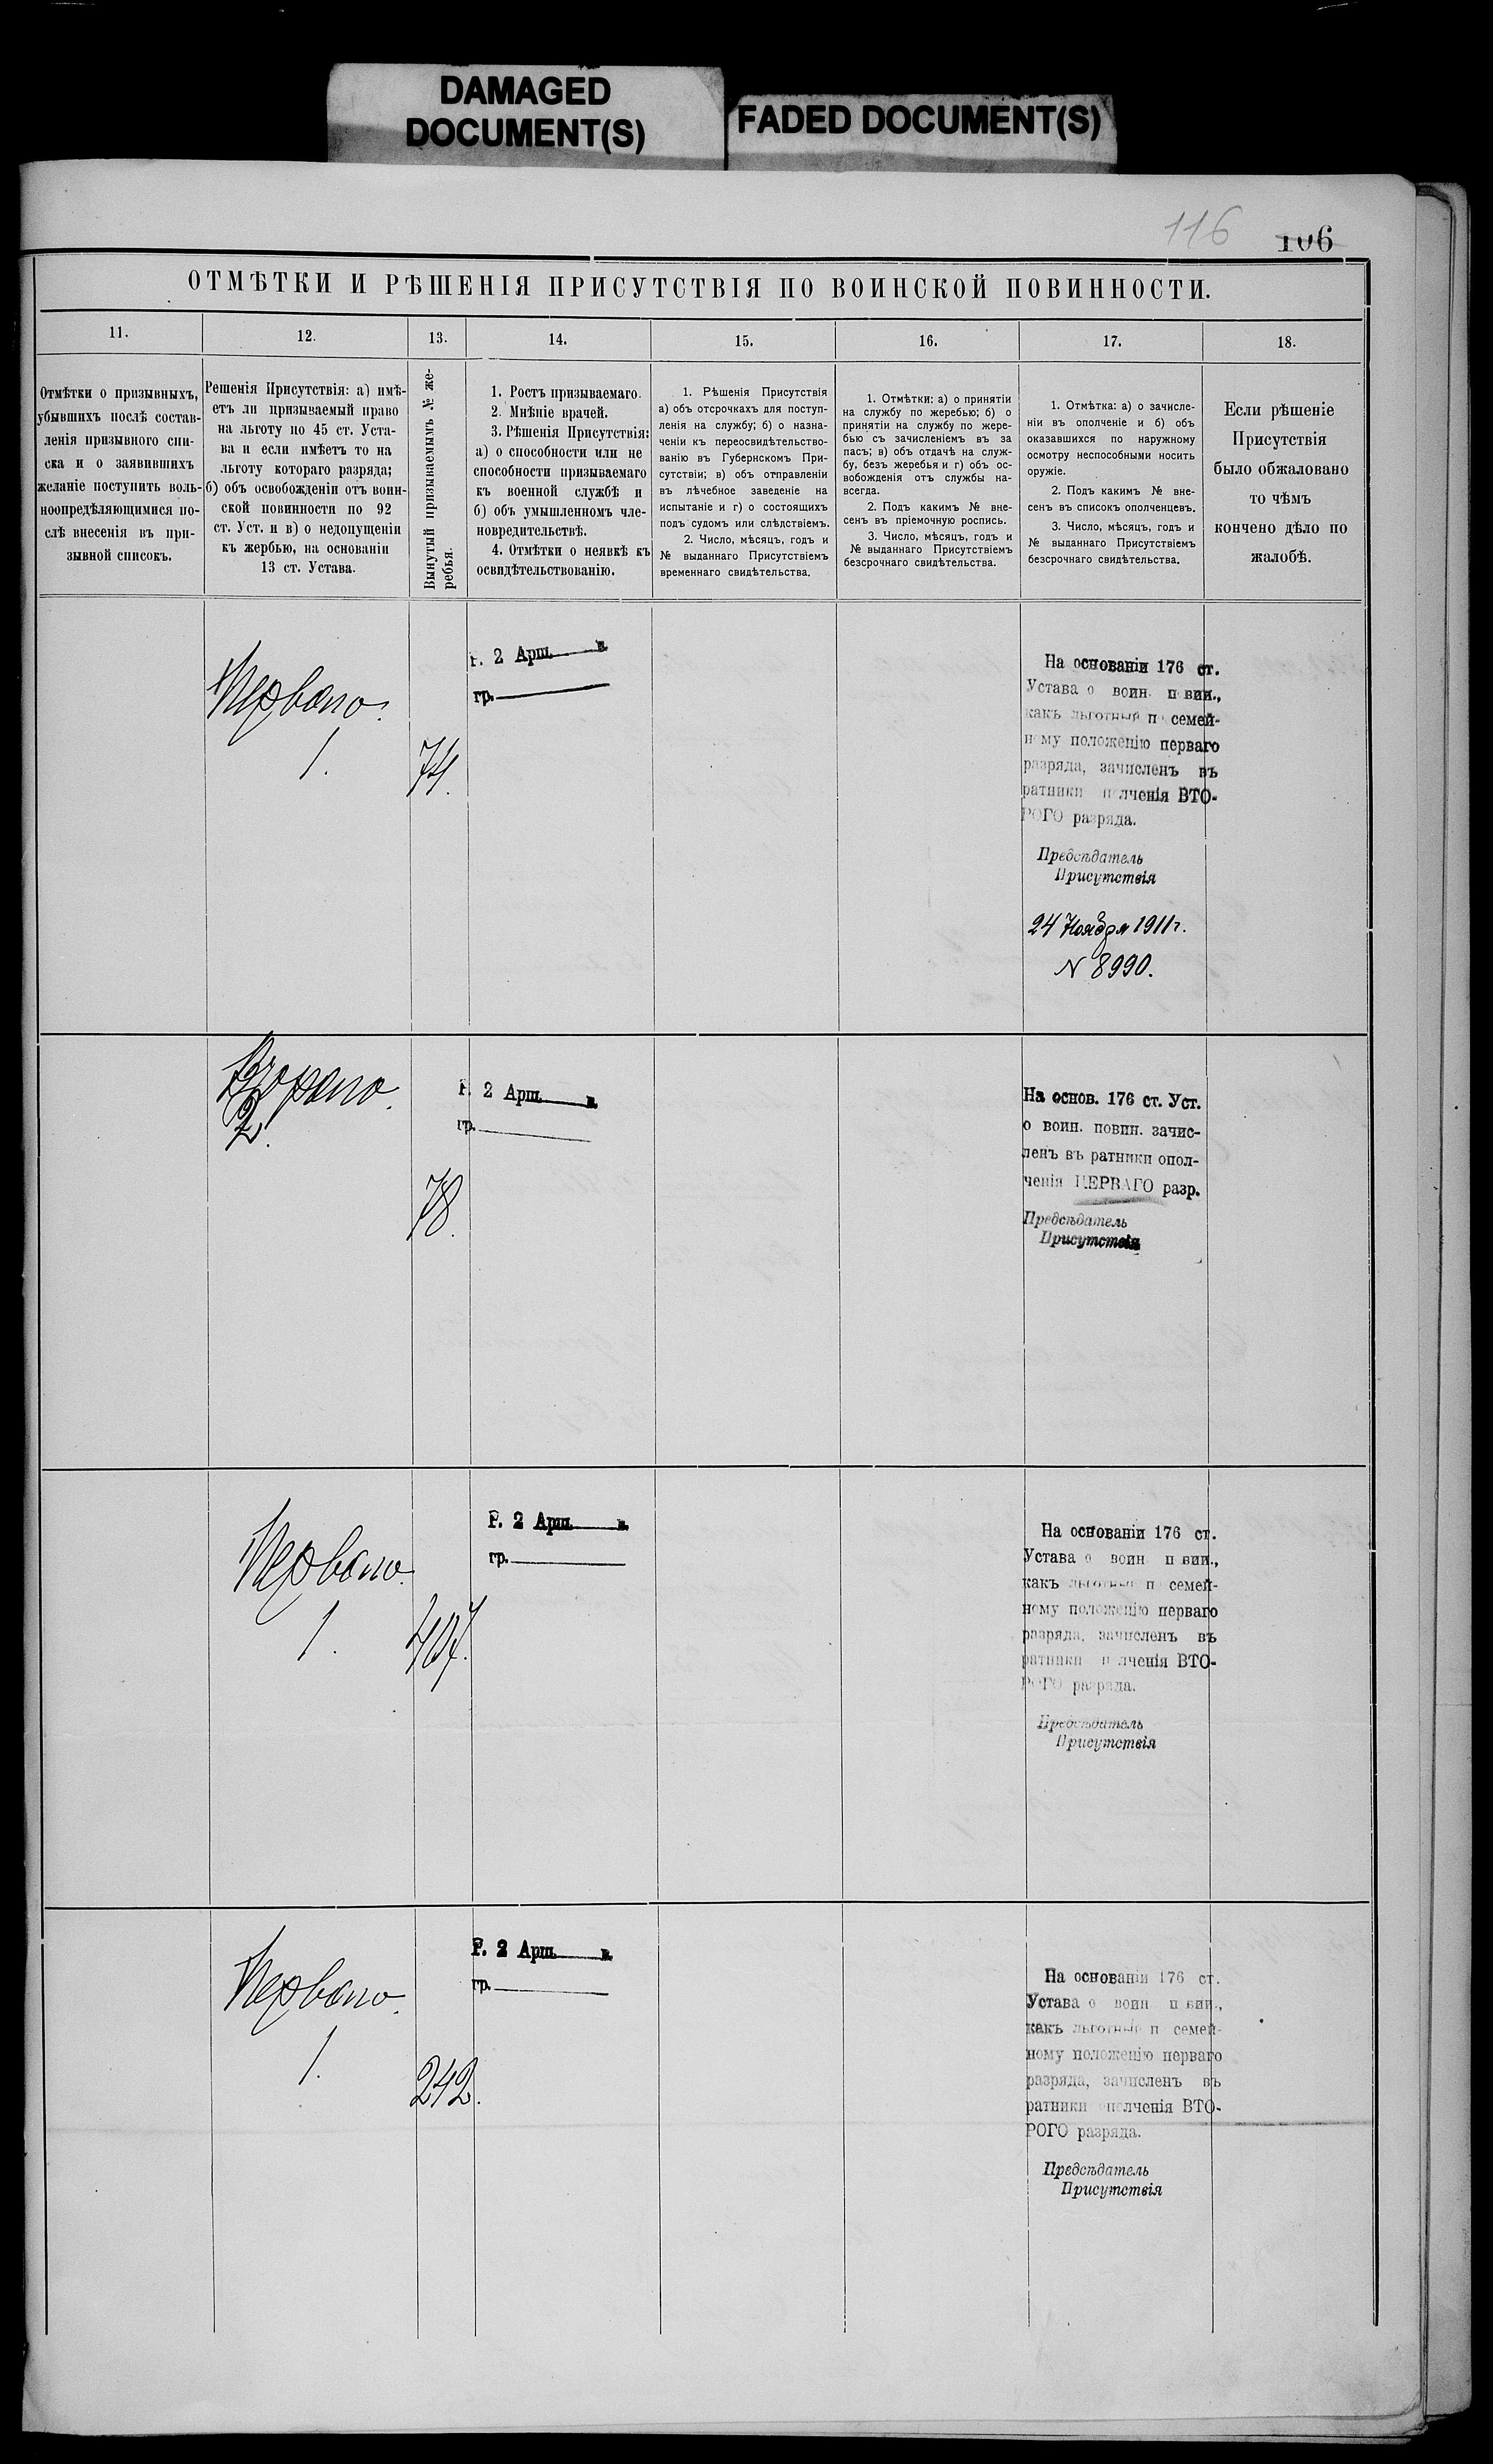 DAMAGED
DOCUMENT(S)
FADED DOCUMENT(S)
116 106
ОТМѢТКИ И РѢШЕНІЯ ПРИСУТСТВІЯ ПО ВОИНСКОЙ ПОВИННОСТИ.
11.
12.
13.
14.
15.
16.
17.
18.
Отмѣтки о призывныхъ,
убывшихъ послѣ состав-
ленія призывного спи-
ска и о заявившихъ
желаніе поступить воль-
ноопредѣляющимися по-
слѣ внесенія въ при-
зывной списокъ.
Решенія Присутствія: а) имѣ-
етъ ли призываемый право
на льготу по 45 ст. Уста-
ва и если имѣетъ то на
льготу котораго разряда;
б) объ освобожденіи отъ воин-
ской повинности по 92
ст. Уст. и в) о недопущеніи
къ жербью, на основаніи
13 ст. Устава.
Вынутый призываемымъ № же-
ребья.
1. Ростъ призываемаго.
2. Мнѣніе врачей.
3. Рѣшенія Присутствія:
а) о способности или не
способности призываемаго
къ военной службѣ и
б) объ умышленномъ чле-
новредительствѣ.
4. Отмѣтки о неявкѣ къ
освидѣтельствованію.
1. Рѣшенія Присутствія
а) объ отсрочкахъ для поступ-
ленія на службу; б) о назна-
ченіи къ переосвидѣтельство-
ванію въ Губернскомъ При-
сутствіи; в) объ отправленіи
въ лѣчебное заведеніе на
испытаніе и г) о состоящихъ
подъ судомъ или слѣдствіемъ.
2. Число, мѣсяцъ, годъ и
№ выданнаго Присутствіемъ
временнаго свидѣтельства.
1. Отмѣтки: а) о принятіи
на службу по жеребью; б) о
принятіи на службу по жере-
бью съ зачисленіемъ въ за
пасъ; в) объ отдачѣ на служ-
бу, безъ жеребья и г) объ ос-
вобожденія отъ службы на-
всегда.
2. Подъ какимъ № вне-
сенъ въ пріемочную роспись.
3. Число, мѣсяцъ, годъ и
№ выданнаго Присутствіемъ
безсрочнаго свидѣтельства.
1. Отмѣтка: а) о зачисле-
ніи въ ополченіе и б) объ
оказавшихся по наружному
осмотру неспособными носить
оружіе.
2. Подъ какимъ № вне-
сенъ въ списокъ ополченцевъ.
3. Число, мѣсяцъ, годъ и
№ выданнаго Присутствіемъ
безсрочнаго свидѣтельства.
Если рѣшеніе
Присутствія
было обжаловано
то чѣмъ
кончено дѣло по
жалобѣ.
Перваго.
1.
74.
Р. 2 Арш. в.
гр.
На основаніи 176 ст.
Устава о воин. повин.,
какъ льготный по семей-
ному положенію перваго
разряда, зачисленъ въ
ратники ополченія ВТО-
РОГО разряда.
Предсѣдатель
Присутствія
24 Ноября 1911 г.
N 8990.
Втораго.
2.
78.
Р. 2 Арш. в.
гр.
На основ. 176 ст. Уст.
о воин. повин. зачис-
ленъ въ ратники опол-
ченія ПЕРВАГО разр.
Предсѣдатель
Присутствія
Перваго.
1.
407.
Р. 2 Арш. в.
гр.
На основаніи 176 ст.
Устава о воин повин.,
какъ льготный по семей-
ному положенію перваго
разряда, зачисленъ въ
ратники ополченія ВТО-
РОГО разряда.
Предсѣдатель
Присутствія
Перваго.
1.
242.
Р. 2 Арш. в.
гр.
На основаніи 176 ст.
Устава о воин повин.,
какъ льготный по семей-
ному положенію перваго
разряда, зачисленъ въ
ратники ополченія ВТО-
РОГО разряда.
Предсѣдатель
Присутствія